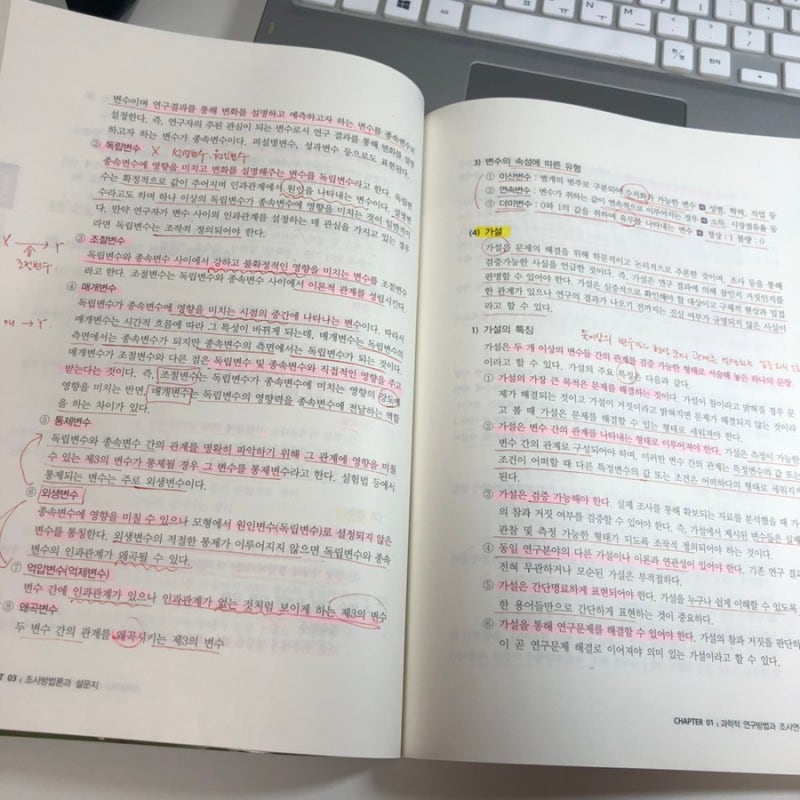 변수이며 연구결과를 통해 변화를 설명하고 예측하고자 하는 변수를 종속변수로
설정한다. 즉, 연구자의 주된 관심이 되는 변수로서 연구 결과를 통해 변화를 설명
하고자 하는 변수가 종속변수이다. 피설명변수, 성과변수 등으로도 표현한다.
② 독립변수 X 설명변수, 원인변수
종속변수에 영향을 미치고 변화를 설명해주는 변수를 독립변수라고 한다. 독립변
수는 확정적으로 값이 주어지며 인과관계에서 원인을 나타내는 변수이다. 설명변
수라고도 하며 하나 이상의 독립변수가 종속변수에 영향을 미치는 것이 일반적이
다. 만약 연구자가 변수 사이의 인과관계를 설정하는 데 관심을 가지고 있는 경우
라면 독립변수는 조작적 정의되어야 한다.
X → Y
조절변수
③ 조절변수
독립변수와 종속변수 사이에서 강하고 불확정적인 영향을 미치는 변수를 조절변수
라고 한다. 조절변수는 독립변수와 종속변수 사이에서 이론적 관계를 설립시킨다
④ 매개변수
독립변수가 종속변수에 영향을 미치는 시점의 중간에 나타나는 변수이다. 따라서
매개변수는 시간적 흐름에 따라 그 특성이 바뀌게 되는데, 매개변수는 독립변수의
매 → Y
측면에서는 종속변수가 되지만 종속변수의 측면에서는 독립변수가 되는 것이다.
매개변수가 조절변수와 다른 점은 독립변수 및 종속변수와 직접적인 영향을 주고
받는다는 것이다. 즉, 조절변수는 독립변수가 종속변수에 미치는 영향의 강도에
영향을 미치는 반면, 매개변수는 독립변수의 영향력을 종속변수에 전달하는 역할
을 하는 차이가 있다.
⑤ 통제변수
독립변수와 종속변수 간의 관계를 명확히 파악하기 위해 그 관계에 영향을 미칠
수 있는 제3의 변수가 통제될 경우 그 변수를 통제변수라고 한다. 실험법 등에서
통제되는 변수는 주로 외생변수이다.
⑥ 외생변수
종속변수에 영향을 미칠 수 있으나 모형에서 원인변수(독립변수)로 설정되지 않은
변수를 통칭한다. 외생변수의 적절한 통제가 이루어지지 않으면 독립변수와 종속
변수의 인과관계가 왜곡될 수 있다.
⑦ 억압변수(억제변수)
변수 간에 인과관계가 있으나 인과관계가 없는 것처럼 보이게 하는 제3의 변수
⑧ 왜곡변수
두 변수 간의 관계를 왜곡시키는 제3의 변수
T 03 : 조사방법론과 설문지
3) 변수의 속성에 따른 유형
① 이산변수 : 별개의 범주로 구분되어 수치화가 가능한 변수 예 성별, 학력, 직업 등
② 연속변수 : 변수가 취하는 값이 연속적으로 이루어지는 경우 예 소득, 시설점유율 등
③ 더미변수 : 0와 1의 값을 취하여 유무를 나타내는 변수 예 정상 : 1 불량 : 0
(4) 가설
가설은 문제의 해결을 위해 학문적이고 논리적으로 추론한 것이며, 조사 등을 통해
검증가능한 사실을 언급한 것이다. 즉, 가설은 연구 결과에 의해 참인지 거짓인지를
판명할 수 있어야 한다. 가설은 실증적으로 확인해야 할 대상이고 구체적 현상과 밀접
한 관계가 있으나 연구의 결과가 나오기 전까지는 진실 여부가 규명되지 않은 사실이
라고 할 수 있다.
둘이상의 변수 또는
1) 가설의 특징
가설은 두 개 이상의 변수들 간의 관계를 검증 가능한 형태로 서술해 놓은 하나의 문장
이라고 할 수 있다. 가설의 특징은 다음과 같다.
① 가설의 가장 큰 목적은 문제를 해결하는 것이다. 가설이 참이라고 밝혀질 경우 문
제가 해결되는 것이고 가설이 거짓이라고 밝혀지면 문제가 해결되지 않는 것이라
고 볼 때 가설은 문제를 해결할 수 있는 형태로 세워져야 한다.
② 가설은 변수 간의 관계를 나타내는 형태로 이루어져야 한다. 가설은 측정이 가능한
변수 간의 관계로 구성되어야 하며, 이러한 변수 간의 관계는 특정변수의 값 또는
조건이 어떠할 때 다른 특정변수의 값 또는 조건은 어떠하다의 형태로 세워지게
된다.
③ 가설은 검증 가능해야 한다. 실제 조사를 통해 확보되는 자료를 분석했을 때 가
의 참과 거짓 여부를 검증할 수 있어야 한다. 즉, 가설에서 제시된 변수들은 실제
관찰 및 측정 가능한 형태가 되도록 조작적 정의되어야 하는 것이다.
④ 동일 연구분야의 다른 가설이나 이론과 연관성이 있어야 한다. 기존 연구 결과
전혀 무관하거나 모순된 가설은 부적절하다.
⑤ 가설은 간단명료하게 표현되어야 한다. 가설을 누구나 쉽게 이해할 수 있도록
한 용어들만으로 간단하게 표현하는 것이 중요하다.
⑥ 가설을 통해 연구문제를 해결할 수 있어야 한다. 가설의 참과 거짓을 판단하
이 곧 연구문제 해결로 이어져야 의미 있는 가설이라고 할 수 있다.
CHAPTER 01 : 과학적 연구방법과 조사연